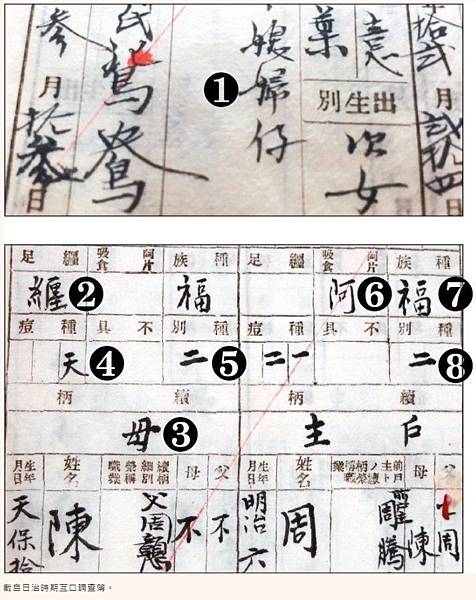 拾弐月弐拾四
憲
葉
出生別
次女
媳婦仔
❶
氏鴛鴦
參月拾參日
種族 阿片吸食 纏足 種族 阿片吸食 纏足
❼福 ❻阿 福 ❷纏
種別 不具 種痘 種別 不具 種痘
❽二 一二 ❺二 ❹天
續柄 續柄
戶主 ❸母
父 母 前戶主トノ續柄 姓名 生年月日 父 母 續柄細別榮稱職業 姓名 生年月日
周
陳
周騰
周
明治六
不
不
父周
陳
天保拾
截自日治時期互口調查簿。